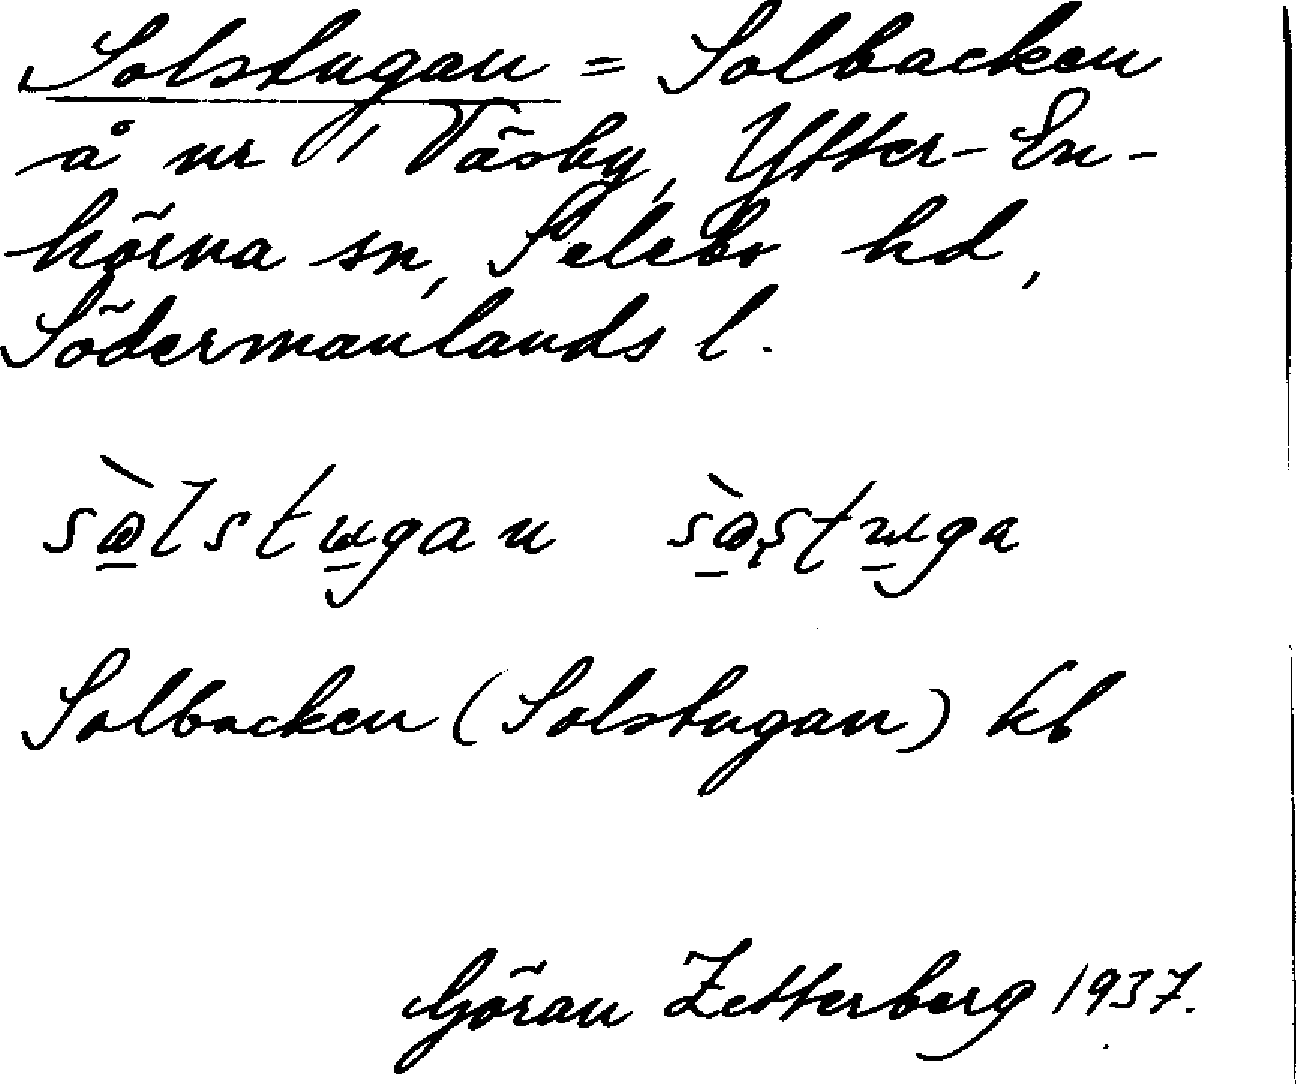 Solstugan = Solbacken
å nr 1 Täsby, Ytter-En-
hörna sn, Selebo hd,
Södermanlands l.
Solbacken (Solstugan) kb
Göran Zetterberg 1937.